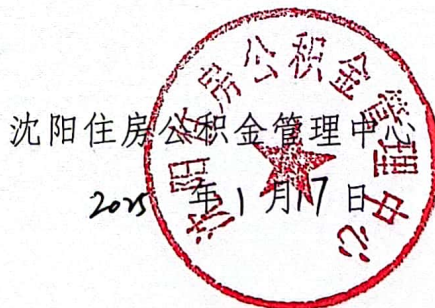 沈阳住房公积金管理中心
2025年1月17日
沈阳住房公积金管理中心